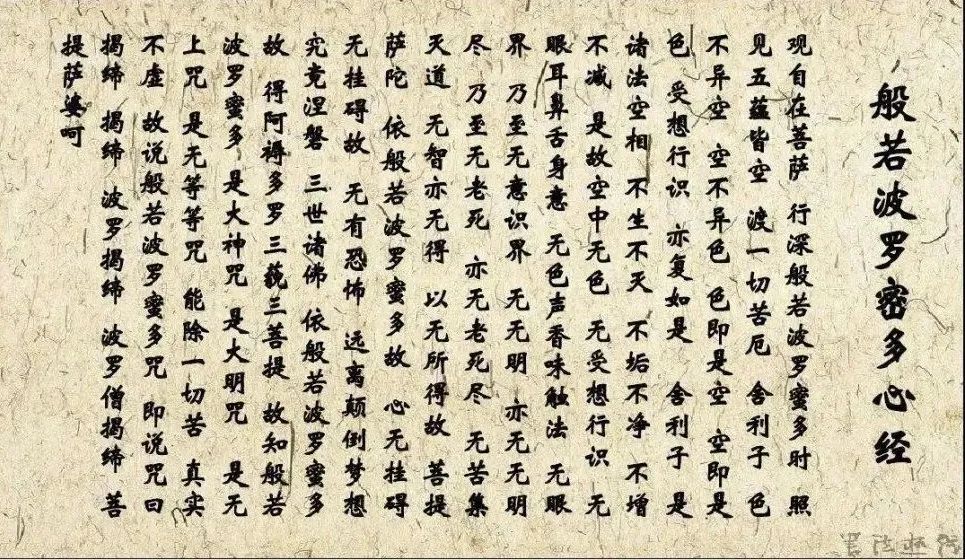 般若波罗密多心经
观自在菩萨 行深般若波罗蜜多时 照
见五蕴皆空 渡一切苦厄 舍利子 色
不异空 空不异色 色即是空 空即是
色 受想行识 亦复如是 舍利子 是
诸法空相 不生不灭 不垢不净 不增
不减 是故空中无色 无受想行识 无
眼耳鼻舌身意 无色声香味触法 无眼
界 乃至无意识界 无无明 亦无无明
尽 乃至无老死 亦无老死尽 无苦集
灭道 无智亦无得 以无所得故 菩提
萨陀 依般若波罗蜜多故 心无挂碍
无挂碍故 无有恐怖 远离颠倒梦想
究竟涅磐 三世诸佛 依般若波罗蜜多
故 得阿褥多罗三藐三菩提 故知般若
波罗蜜多 是大神咒 是大明咒 是无
上咒 是无等等咒 能除一切苦 真实
不虚 故说般若波罗蜜多咒 即说咒曰
揭缔 揭缔 波罗揭缔 波罗僧揭缔 菩
提萨婆呵